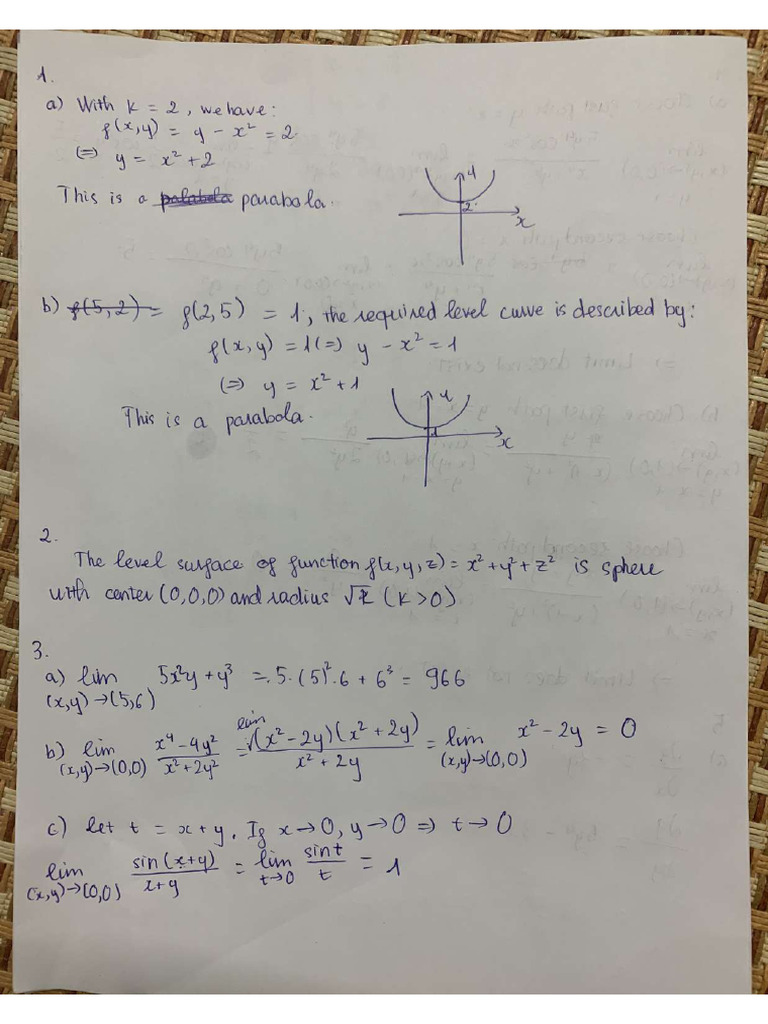 1.
a) With K = 2, we have:
f(x,y) = y - x² = 2
(=) y = x² + 2
This is a palabola parabola.
y
2
x
b) f(5,2) = f(2,5) = 1, the required level curve is described by:
f(x,y) = 1 (=) y - x² = 1
(=) y = x² + 1
This is a parabola.
y
1
x
2.
The level surface of function f(x,y,z) = x² + y² + z² is sphere
with center (0,0,0) and radius √k (K > 0)
3.
a) lim 5x²y + y³ = 5·(5)²·6 + 6³ = 966
(x,y)→(5,6)
b) lim (x⁴ - 4y²)/(x² + 2y²) = lim (x² - 2y)(x² + 2y)/(x² + 2y) = lim x² - 2y = 0
(x,y)→(0,0) (x,y)→(0,0)
c) let t = x + y. If x → 0, y → 0 ⇒ t → 0
lim sin(x+y)/(x+y) = lim sint/t = 1
(x,y)→(0,0) t→0